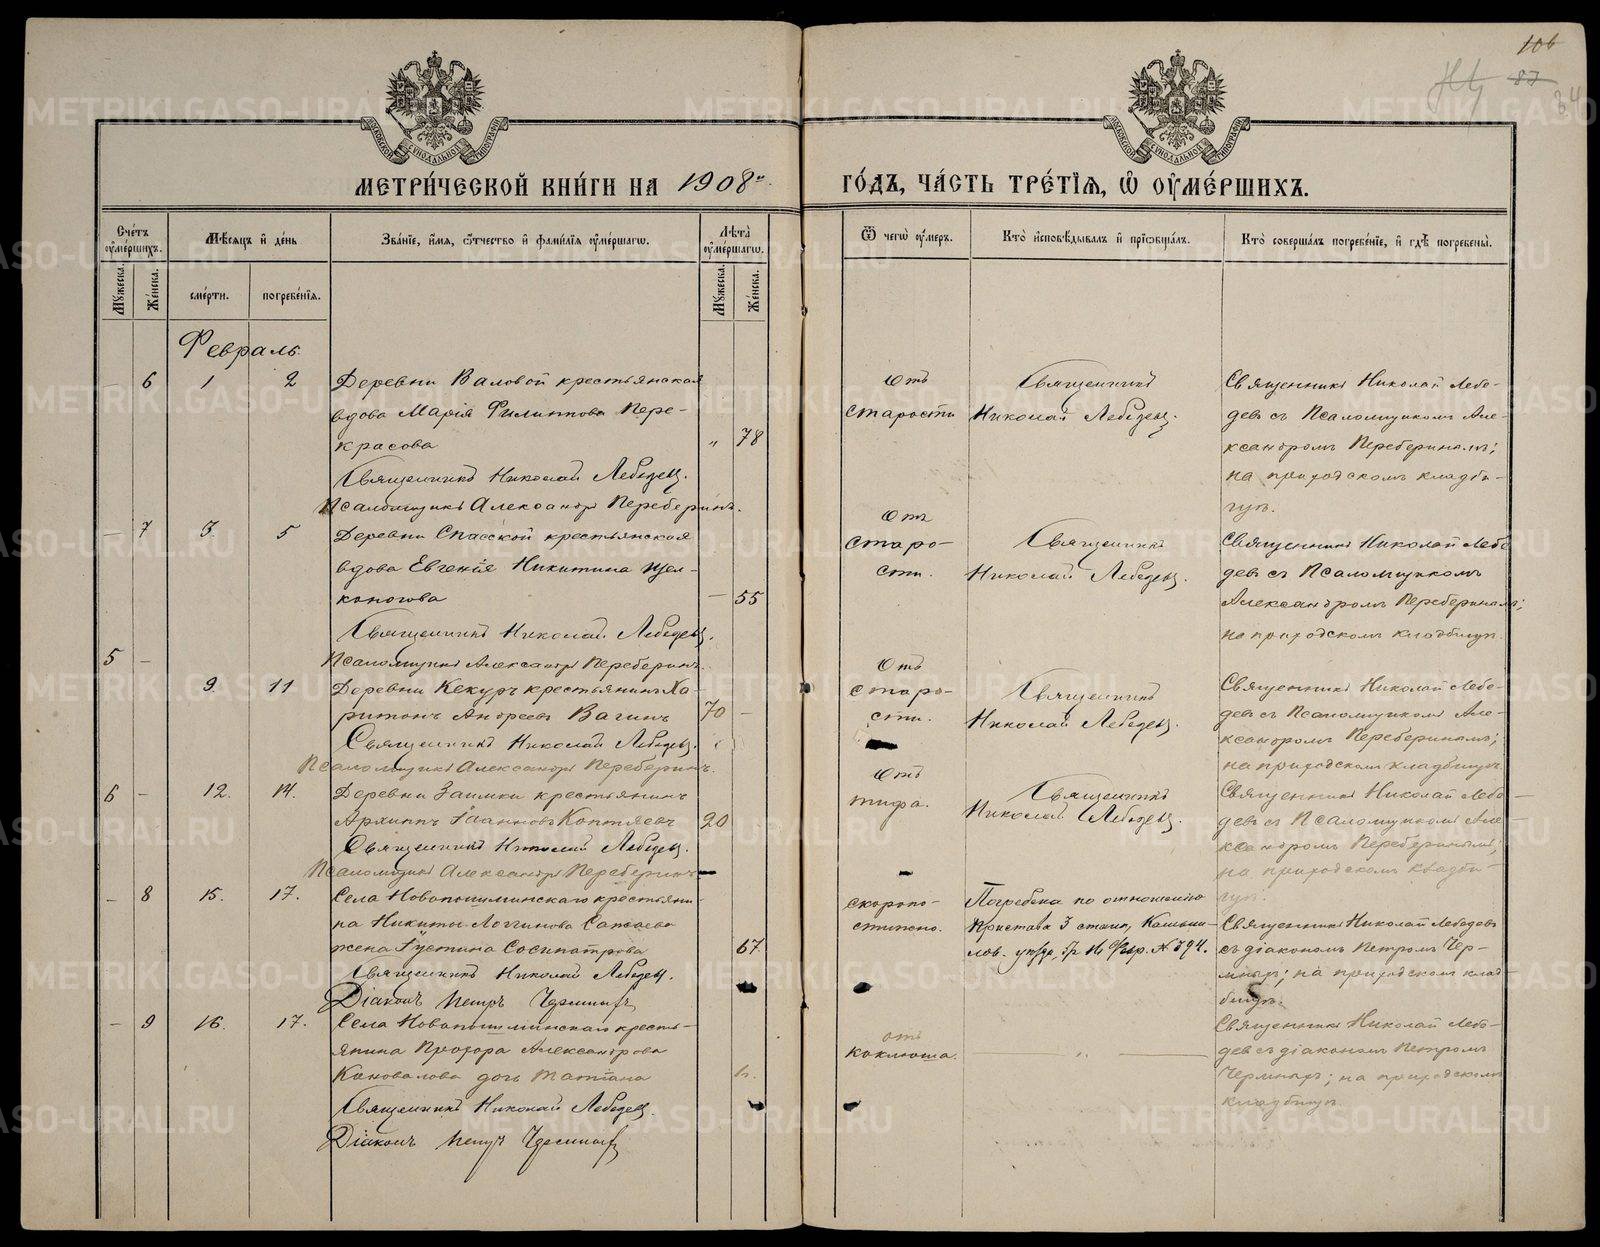 106
87
34
МЕТРИ́ЧЕСКОЙ КНИ́ГИ НА 1908 ГО́ДЪ, ЧА́СТЬ ТРЕ́ТІѦ, Ѡ҆ ОУ҆МЕ́РШИХЪ.
Сче́тъ оу҆ме́ршихъ.
Мѣ́сяцъ и҆ де́нь
Зва́нїе, и҆́мѧ, ѻ҆́тчество и҆ фами́лїѧ оу҆ме́ршагѡ.
Лѣ́та оу҆ме́ршагѡ.
Ѿ чегѡ̀ оу҆́меръ.
Кто̀ и҆сповѣ́дывалъ и҆ прїѡбща́лъ.
Кто̀ соверша́лъ погребе́нїе, и҆ гдѣ̀ погребены̀.
Мꙋ́жеска.
Же́нска.
сме́рти.
погребе́нїѧ.
Мꙋ́жеска.
Же́нска.
Февраль
6 1 2
Деревни Валовой крестьянская
вдова Марія Филиппова Пере-
красова
„ 78
Священникъ Николай Лебедевъ.
Псаломщикъ Александръ Переберинъ.
Отъ
старости
Священникъ
Николай Лебедевъ.
Священникъ Николай Лебе-
девъ съ Псаломщикомъ Але-
ксандромъ Переберинымъ;
на приходскомъ кладби-
щѣ.
— 7 3. 5
Деревни Спасской крестьянская
вдова Евгенія Никитина Щел-
коногова
— 55
Священникъ Николай Лебедевъ.
Псаломщикъ Александръ Переберинъ.
Отъ
старо-
сти.
Священникъ
Николай Лебедевъ.
Священникъ Николай Лебе
девъ съ Псаломщикомъ
Александромъ Переберинымъ;
на приходскомъ кладбищѣ.
5 —
9. 11
Деревни Кекуръ крестьянинъ Ха-
ритонъ Андреевъ Вагинъ
70 —
Священникъ Николай Лебедевъ.
Псаломщикъ Александръ Переберинъ.
Отъ
старо-
сти.
Священникъ
Николай Лебедевъ.
Священникъ Николай Лебе-
девъ съ Псаломщикомъ Але-
ксандромъ Переберинымъ;
на приходскомъ кладбищѣ
6 — 12. 14.
Деревни Заимки крестьянинъ
Архиппъ Іоанновъ Коптяевъ
20
Священникъ Николай Лебедевъ.
Псаломщикъ Александръ Переберинъ
Отъ
тифа.
Священникъ
Николай Лебедевъ.
Священникъ Николай Лебе-
девъ съ Псаломщикомъ Але-
ксандромъ Переберинымъ;
на приходскомъ кладби-
щѣ.
— 8 15. 17.
Села Новопышминскаго крестьяни-
на Никиты Логгинова
жена Іустина Сосипатрова
67
Священникъ Николай Лебедевъ.
Діаконъ Петръ
скоропо-
стижно.
Погребена по отношенію
Пристава 3 стана, Камыш-
лов. уѣзда № 794.
Священникъ Николай Лебедевъ
съ діакономъ Петромъ Чер-
на приходскомъ клад-
бищѣ.
— 9 16. 17.
Села Новопышминскаго кресть-
янина Прохора Александрова
Коновалова дочь Татіана
Священникъ Николай Лебедевъ.
Діаконъ Петръ
отъ
коклюша.
— „ —
Священникъ Николай Лебе-
девъ съ діакономъ Петромъ
на приходскомъ
кладбищѣ.